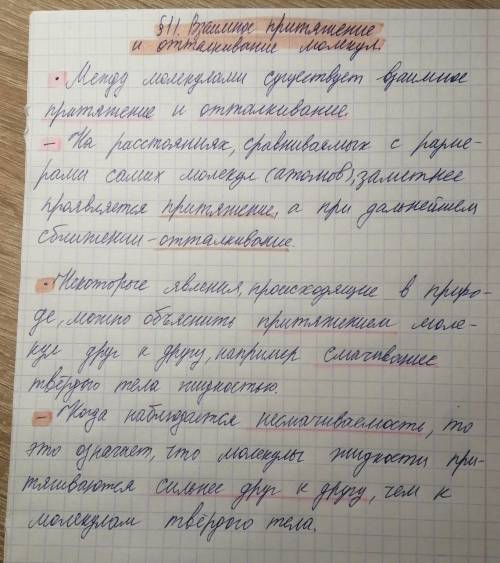 §11. Взаимное притяжение
и отталкивание молекул.
• Между молекулами существует взаимное
притяжение и отталкивание.
– На расстояниях, сравниваемых с разме-
рами самих молекул (атомов), заметнее
проявляется притяжение, а при дальнейшем
сближении - отталкивание.
• Некоторые явления, происходящие в приро-
де, можно объяснить притяжением моле-
кул друг к другу, например смачивание
твёрдого тела жидкостью.
– Когда наблюдается несмачиваемость, то
это означает, что молекулы жидкости при-
тягиваются сильнее друг к другу, чем к
молекулам твёрдого тела.